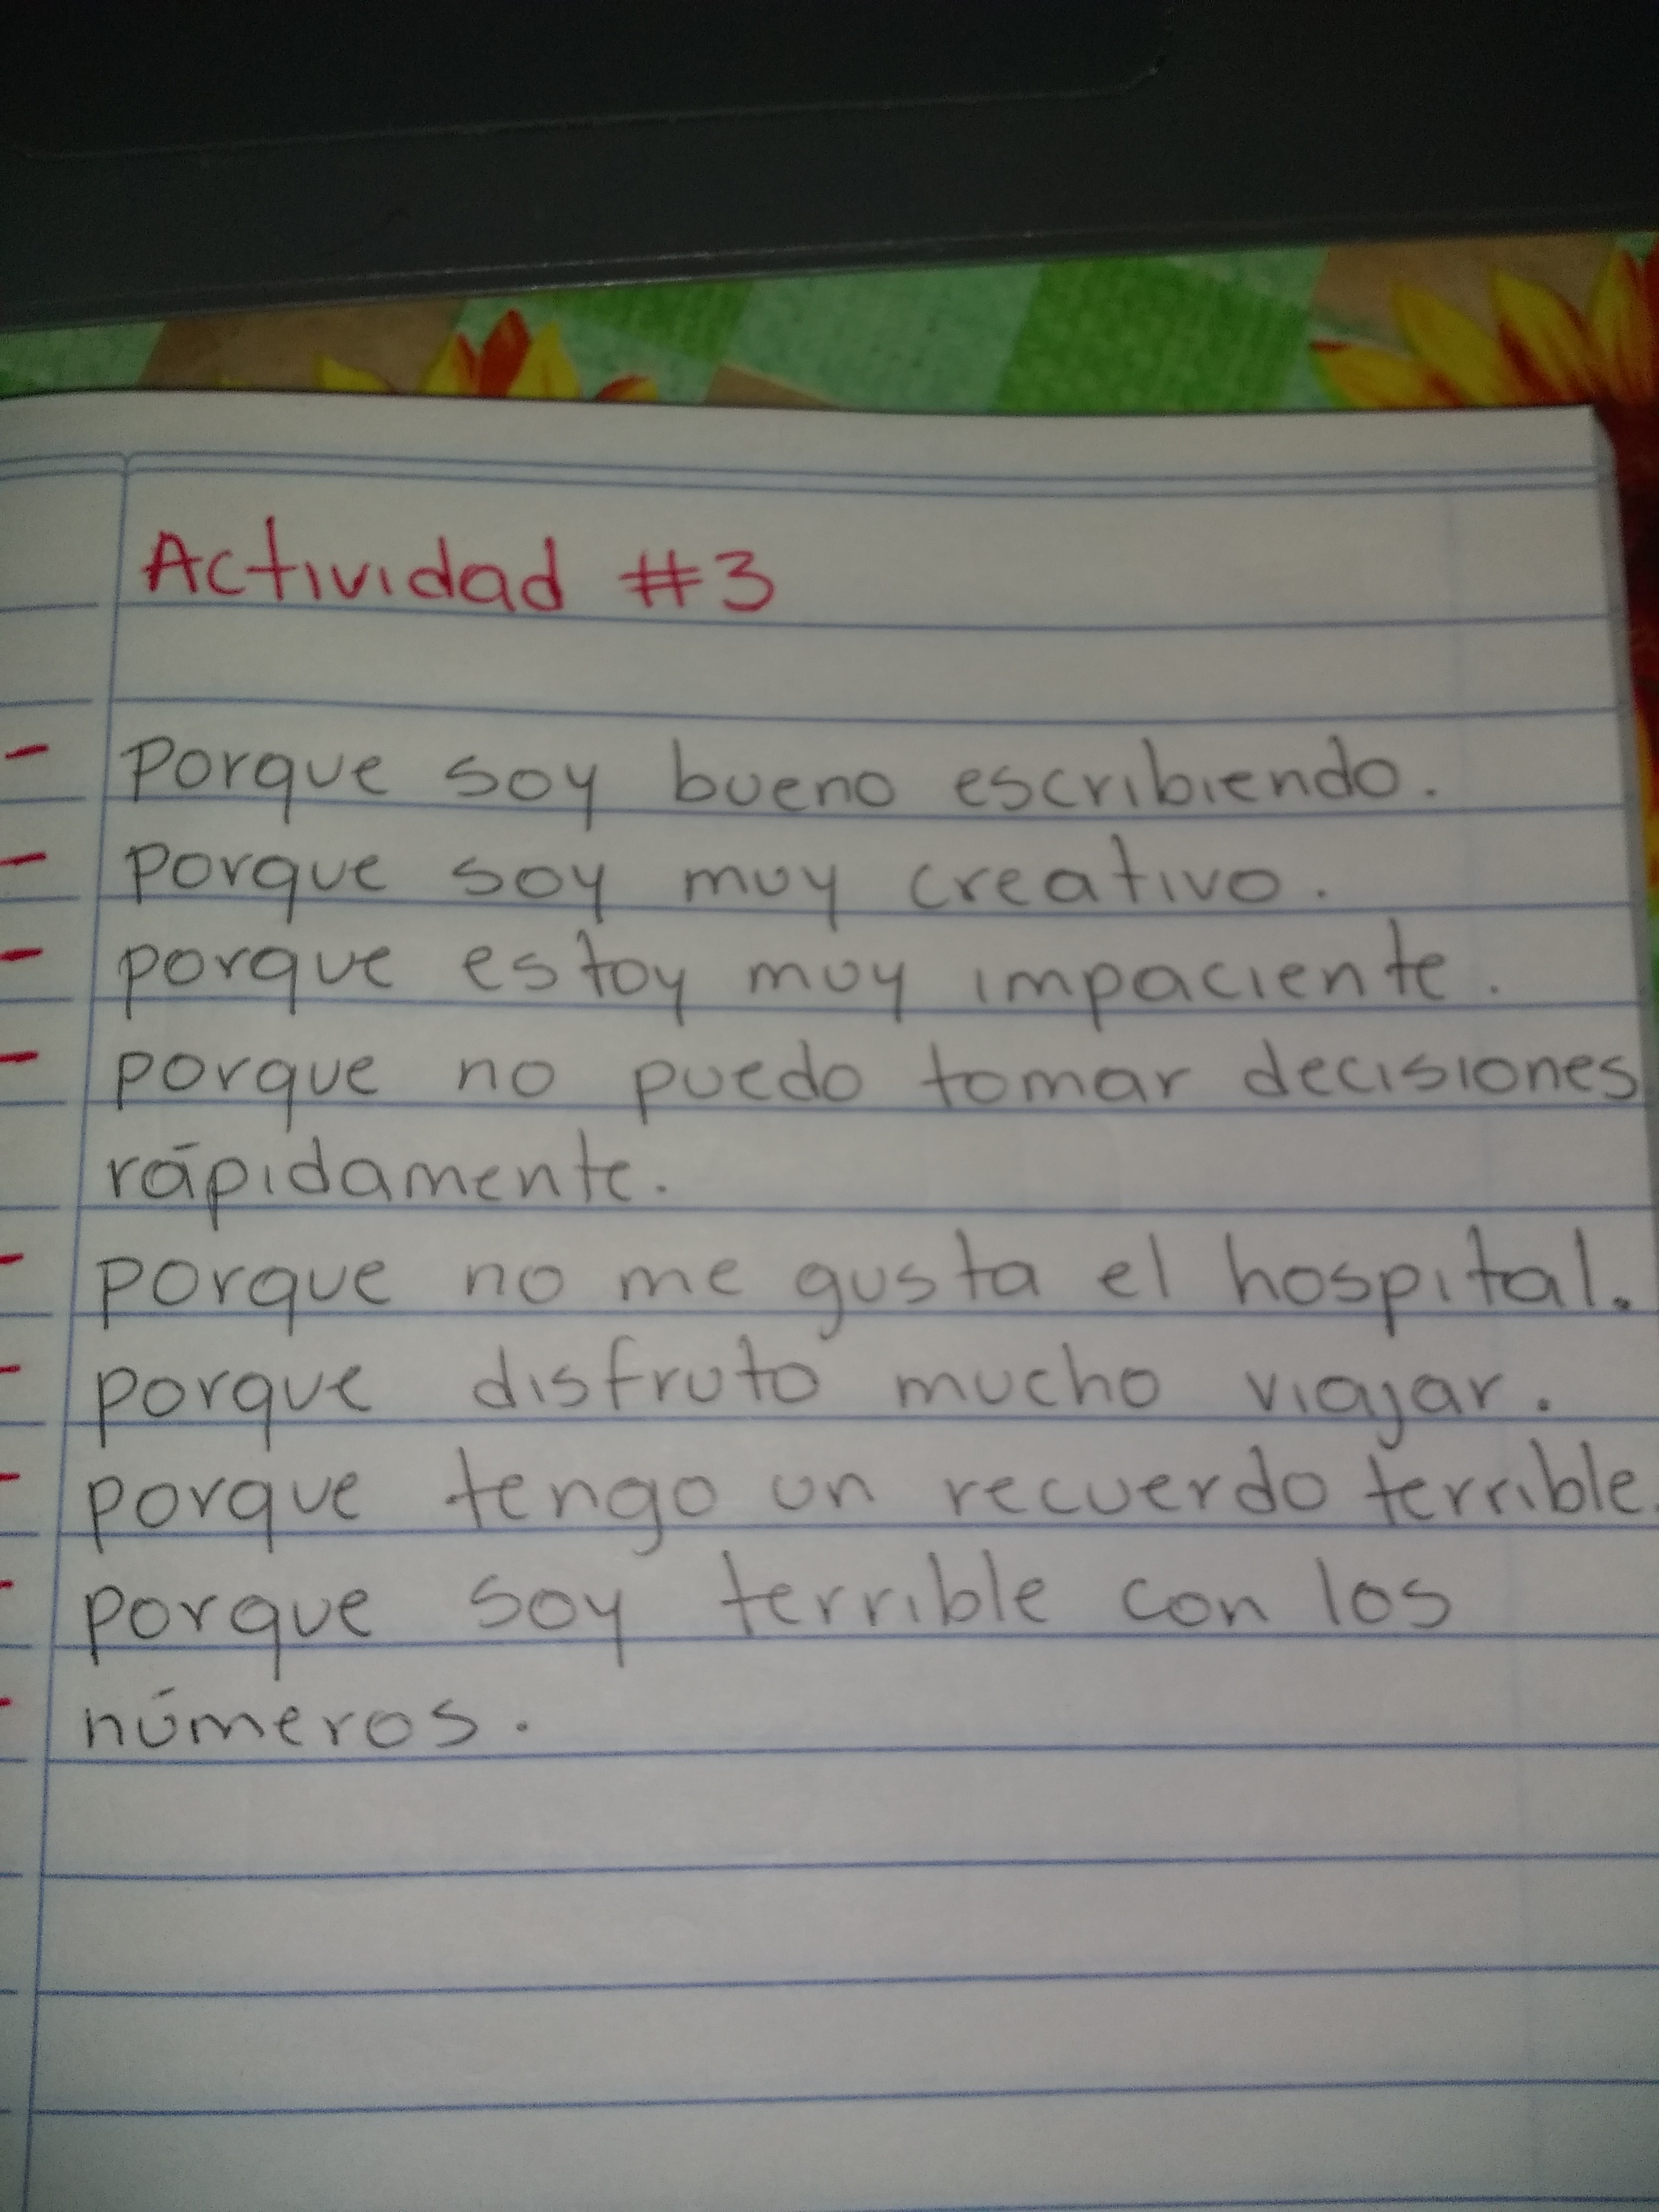 Actividad #3
- Porque soy bueno escribiendo.
- Porque soy muy creativo.
- porque estoy muy impaciente.
- porque no puedo tomar decisiones
rápidamente.
- porque no me gusta el hospital.
- porque disfruto mucho viajar.
- porque tengo un recuerdo terrible.
- porque soy terrible con los
- números.